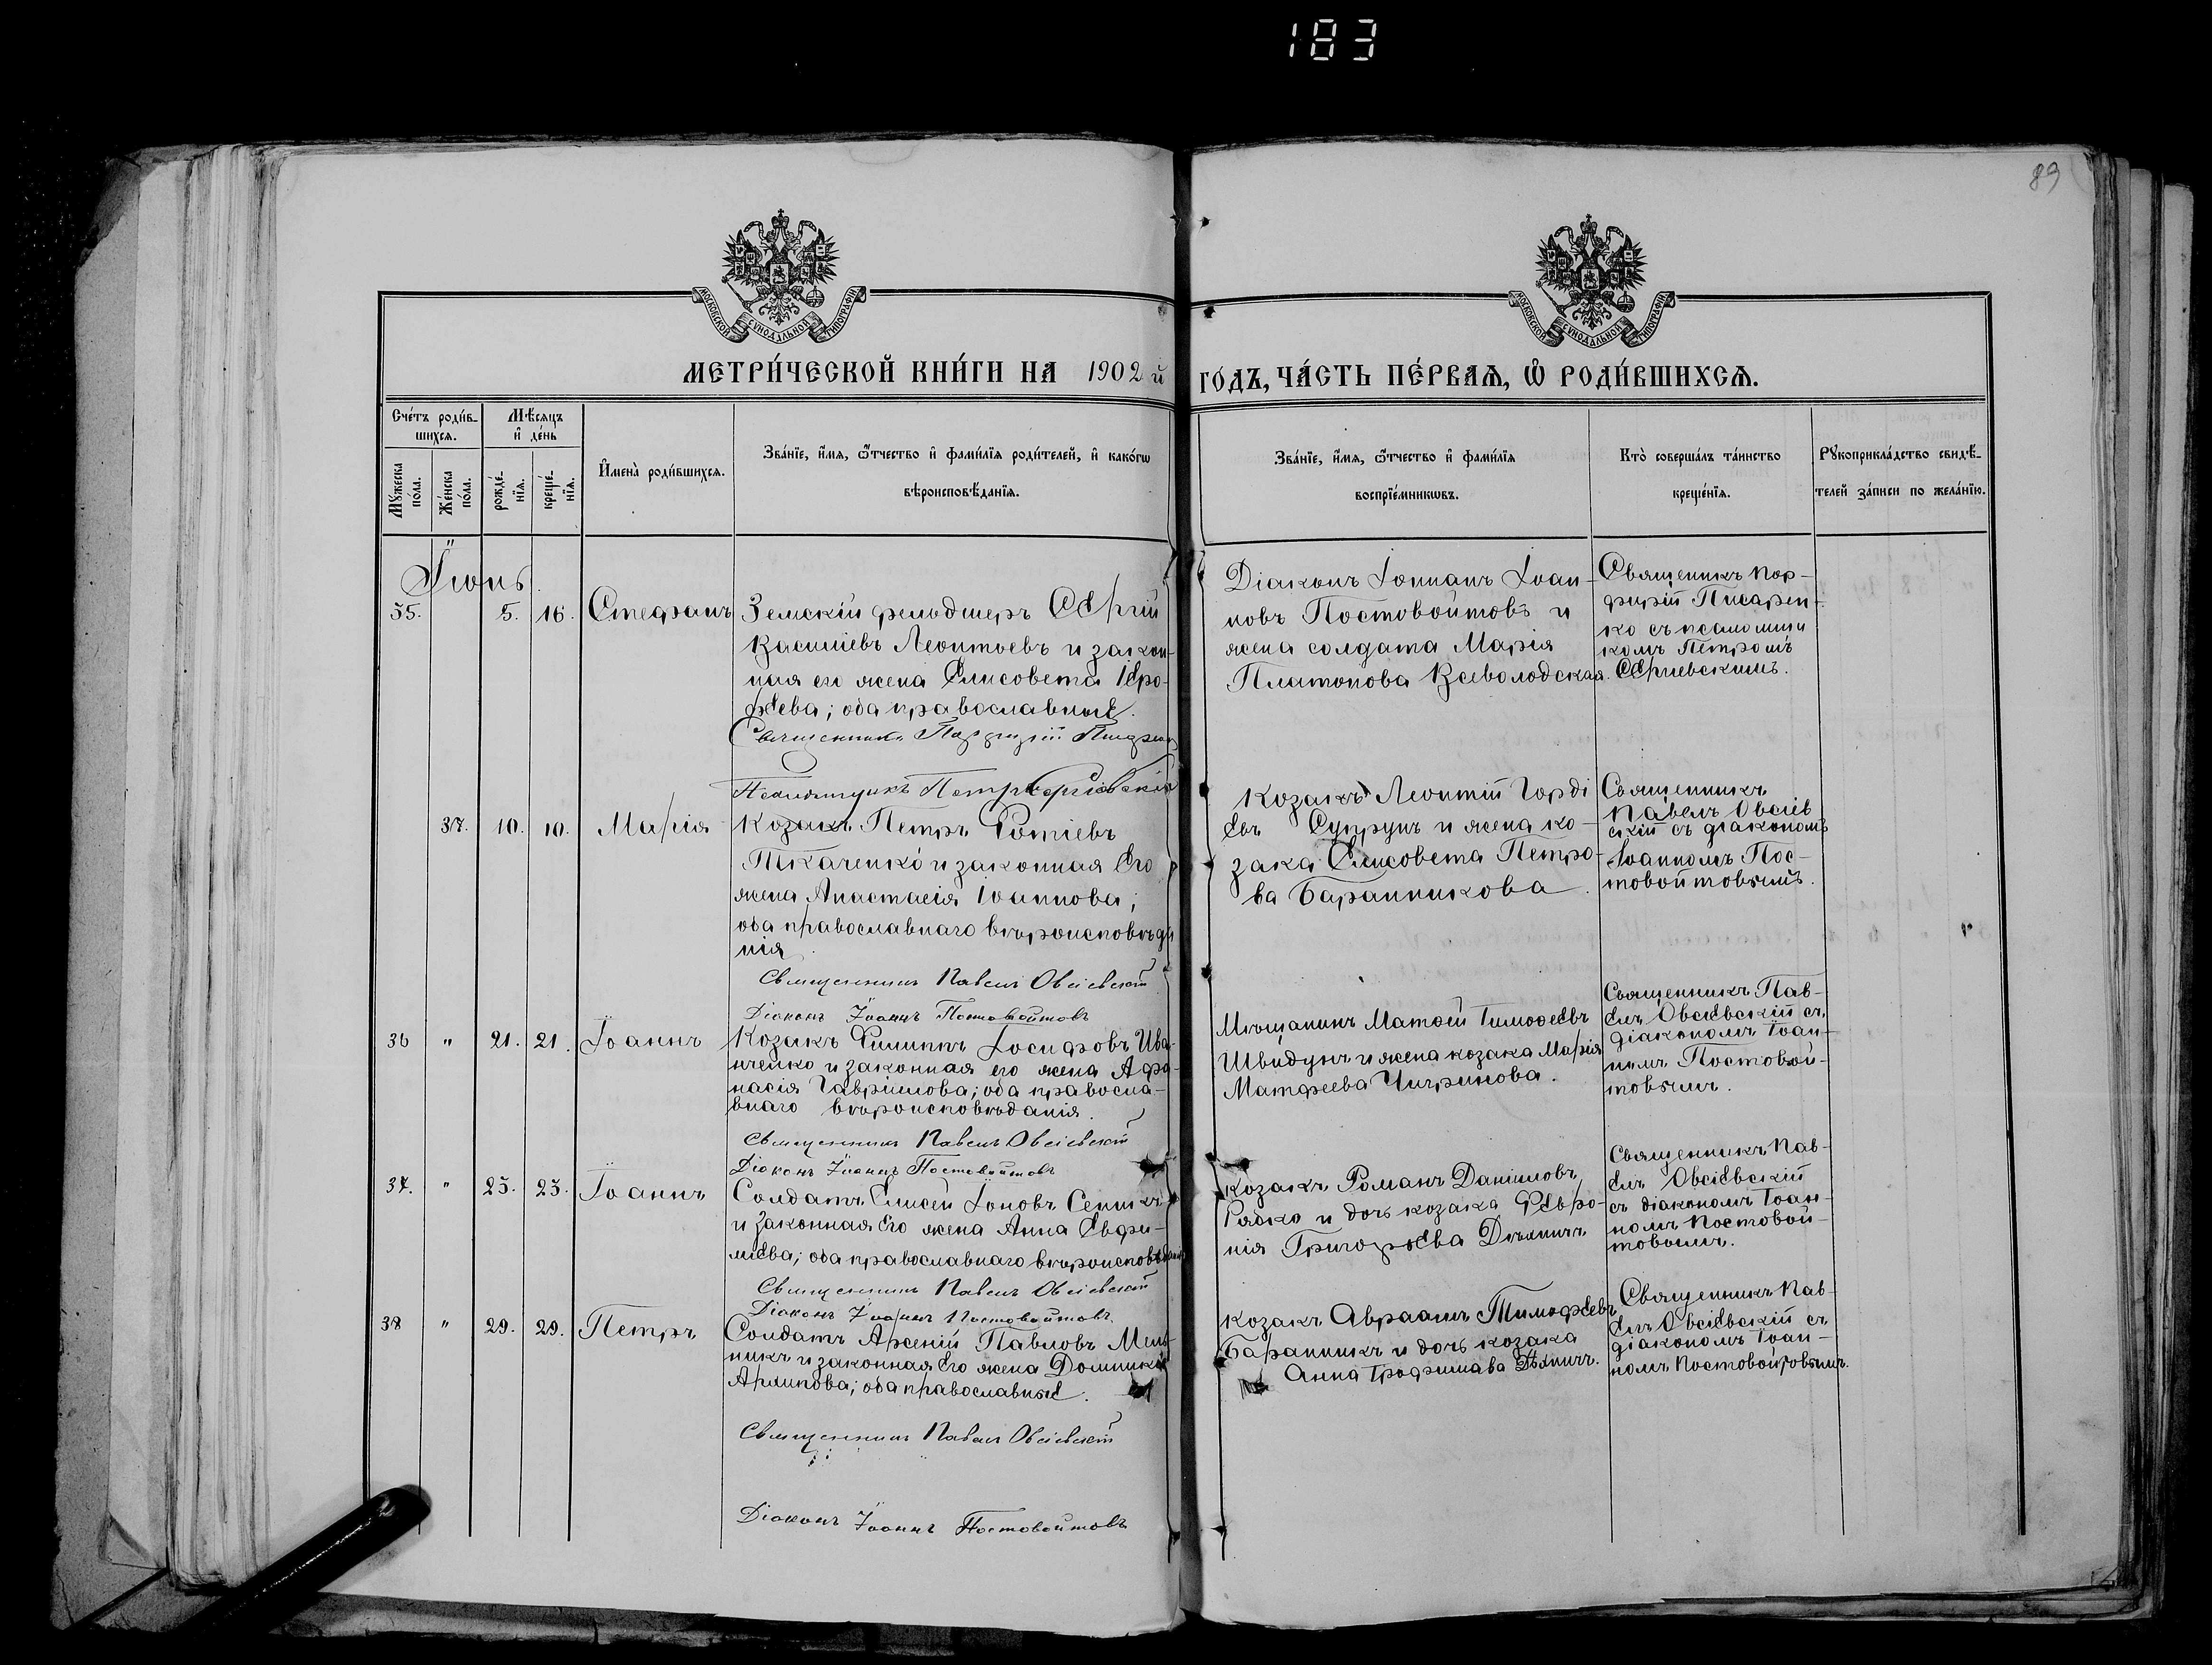 183
89
МОСКОВСКОЙ СѴНОДАЛЬНОЙ ТИПОГРАФІИ
МОСКОВСКОЙ СѴНОДАЛЬНОЙ ТИПОГРАФІИ
МЕТРИ́ЧЕСКОЙ КНИ́ГИ НА 1902 й ГО́ДЪ, ЧА́СТЬ ПЕ́РВАѦ, Ѡ҆ РОДИ́ВШИХСѦ.
Сче́тъ роди́в-
шихсѧ.
Мѣ́сѧцъ
и҆ де́нь
Мꙋ́жеска
по́ла.
Же́нска
по́ла.
рожде́-
нїѧ.
креще́-
нїѧ.
И҆мена̀ роди́вшихсѧ.
Зва́нїе, и҆́мѧ, ѻ҆́тчество и҆ фами́лїѧ роди́телей, и҆ како́гѡ
вѣроисповѣ́данїѧ.
Зва́нїе, и҆́мѧ, ѻ҆́тчество и҆ фами́лїѧ
воспрїе́мникѡвъ.
Кто̀ соверша́лъ та́инство
креще́нїѧ.
Рꙋкоприкла́дство свидѣ́-
телей за́писи по жела́нїю.
Іюнь.
35. 5. 16. Стефанъ
Земскій фельдшеръ Сергій
Василіевъ Леонтьевъ и закон-
ная его жена Елисовета Іеро-
фѣева; оба православные.
Священникъ Порфирій
Псаломщикъ Петръ Сергіевскій
Діаконъ Іоаннъ Іоан-
новъ Постовойтовъ и
жена солдата Марія
Платонова Всеволодская.
Священникъ Пор-
фирій Писарен-
ко съ псаломщи
комъ Петромъ
Сергіевскимъ.
37. 10. 10. Марія
Козакъ Петръ Фотіевъ
Ткаченко и законная Его
жена Анастасія Іоаннова;
оба православнаго вѣроисповѣда
нія.
Священникъ Павелъ Овсіевскій
Діаконъ Іоаннъ Постовойтовъ
Козакъ Леонтій Горді
евъ Супрунъ и жена ко-
зака Елисовета Петро-
ва Баранникова.
Священникъ
Павелъ Овсіев
скій съ діакономъ
Іоанномъ Пос-
товойтовымъ.
36 " 21. 21. Іоаннъ
Козакъ Филиппъ Іосифовъ Ива-
нченко и законная его жена Афа-
насія Гавріилова; оба правосла-
внаго вѣроисповѣданія.
Священникъ Павелъ Овсіевскій
Діаконъ Іоаннъ Постовойтовъ
Мѣщанинъ Матѳей Тимоѳеевъ
Швидунъ и жена козака Марія
Матфеева Чигринова.
Священникъ Пав-
елъ Овсіевскій съ
діакономъ Іоан-
номъ Постовой-
товымъ.
37. " 23. 23. Іоаннъ
Солдатъ Елисей Іоновъ
и законная Его жена Анна Евфи-
міева; оба православнаго вѣроисповѣданія
Священникъ Павелъ Овсіевскій
Діаконъ Іоаннъ Постовойтовъ
Козакъ Романъ Даніиловъ
Рябко и дочь козака Февро-
нія Григорьева
Священникъ Пав-
елъ Овсіевскій
съ діакономъ Іоан-
номъ Постовой-
товымъ.
38 " 29. 29. Петръ
Солдатъ Арсеній Павловъ Мель
никъ и законная Его жена Домникія
Архипова; оба православные.
Священникъ Павелъ Овсіевскій
Діаконъ Іоаннъ Постовойтовъ
Козакъ Авраамъ Тимофеевъ
Баранникъ и дочь козака
Анна Трофимава
Священникъ Пав-
елъ Овсіевскій съ
діакономъ Іоан-
номъ Постовойтовымъ.